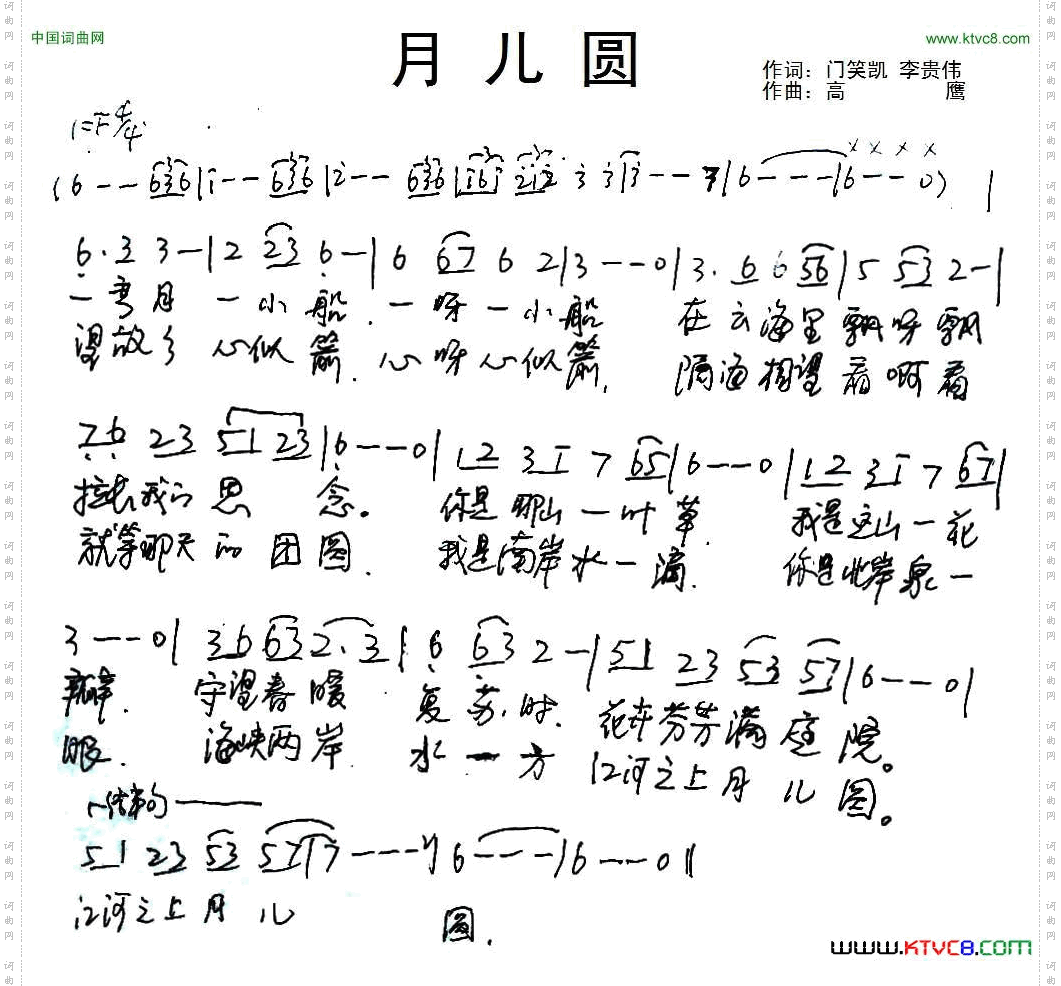 中国词曲网
www.ktvc8.com
月儿圆
作词：门笑凯 李贵伟
作曲：高 鹰
1=F 4/4
(6 - - 636|1 - - 636|2 - - 636|161 212 3 3|3 - - 7|6 - - -|6 - - 0) |
× × × ×
6·3 3 -|2 23 6 -|6 67 6 2|3 - - -0|3·6 6 56|5 53 2 -|
一弯月 一小船，一呀一小船 在云海里飘呀飘
望故乡 心似箭，心呀心似箭， 隔海相望看啊看
76 23 51 23|6 - - -0|12 31 7 65|6 - - -0|12 31 7 67|
拉长我的思 念。 你是那山一叶草， 我是这山一花
就等那天的团圆， 我是南岸水一滴， 你是北岸泉一
3 - - -0|36 63 2·3|6 63 2 -|51 23 53 57|6 - - -0|
瓣， 守望春暖 复苏时， 花卉芬芳满庭院。
眼， 海峡两岸 水一方 江河之上月儿圆。
结束句
51 23 53 57|7 - - - -|6 - - -|6 - - -0‖
江河之上月儿 圆，
www.KTVC8.com